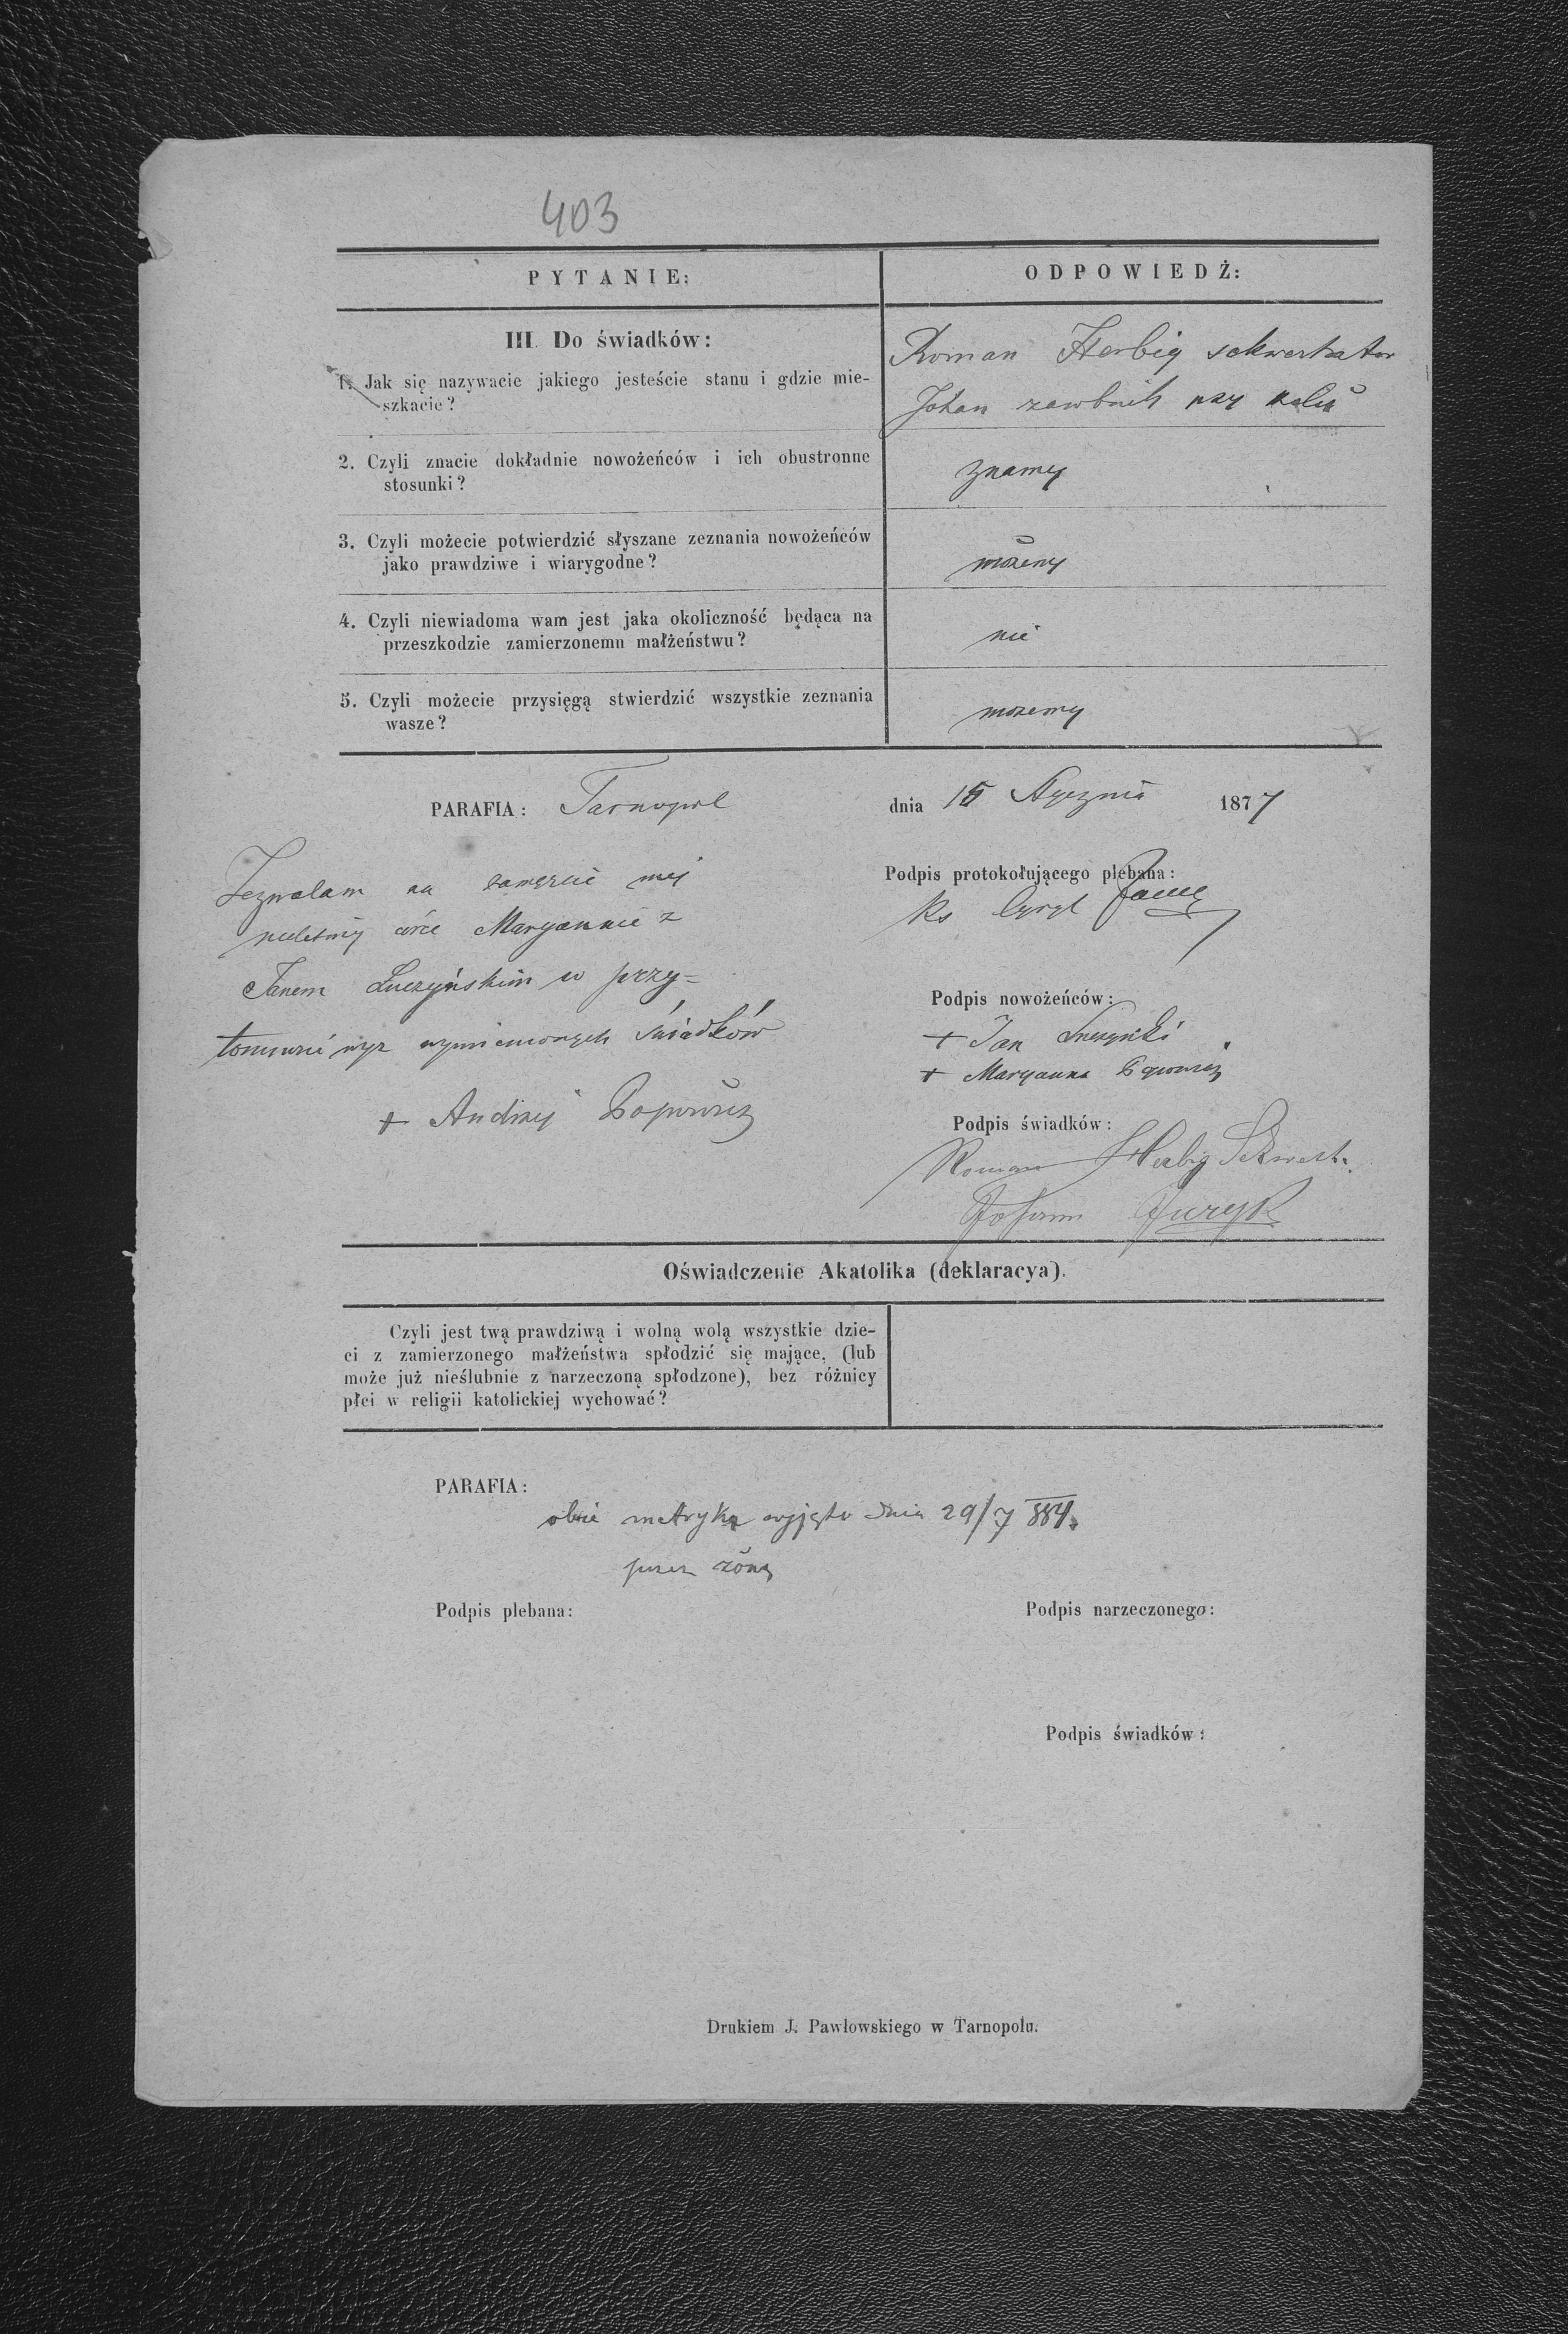 403
PYTANIE:
ODPOWIEDŹ:
III. Do świadków:
1. Jak się nazywacie jakiego jesteście stanu i gdzie mie-
szkacie?
Roman Herbig sekwestrator
Johan
2. Czyli znacie dokładnie nowożeńców i ich obustronne
stosunki?
znamy
3. Czyli możecie potwierdzić słyszane zeznania nowożeńców
jako prawdziwe i wiarygodne?
możemy
4. Czyli niewiadoma wam jest jaka okoliczność będąca na
przeszkodzie zamierzonemu małżeństwu?
nie
5. Czyli możecie przysięgą stwierdzić wszystkie zeznania
wasze?
mozemy
PARAFIA: Tarnopol
dnia 15 Stycznia 1877
Zezwalam na zamęzcie mej
nieletniej córce Maryannie z
Janem Łuczyńskim w przy-
tomności wyz wymienionych świadków
+ Andrzej
Podpis protokołującego plebana:
Ks Cyryl
Podpis nowożeńców:
+ Jan Łuczyński
+ Maryanna
Podpis świadków:
Roman Herbig Sekwestr.
Johann Juryk
Oświadczenie Akatolika (deklaracya).
Czyli jest twą prawdziwą i wolną wolą wszystkie dzie-
ci z zamierzonego małżeństwa spłodzić się mające, (lub
może już nieślubnie z narzeczoną spłodzone), bez różnicy
płci w religii katolickiej wychować?
PARAFIA:
obie metryki wyjęto dnia 29/7 884.
przez żonę
Podpis plebana:
Podpis narzeczonego:
Podpis świadków:
Drukiem J. Pawłowskiego w Tarnopolu.